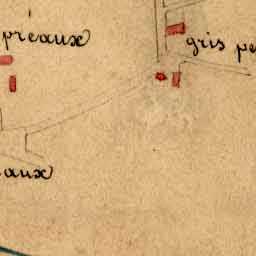 préaux
gris pe
aux